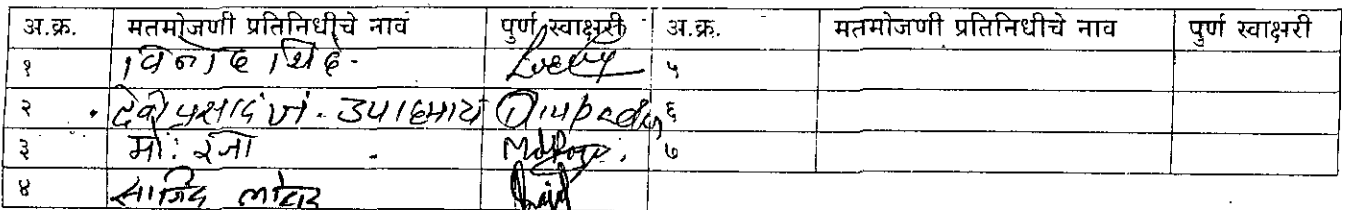 अ.क्र. मतमोजणी प्रतिनिधीचे नाव पुर्ण स्वाक्षरी अ.क्र. मतमोजणी प्रतिनिधीचे नाव पुर्ण स्वाक्षरी
१ विनोद शिंदे. ५
२ देवीप्रसाद उपाध्याय ६
३ मो: रजा ७
४ साजिद